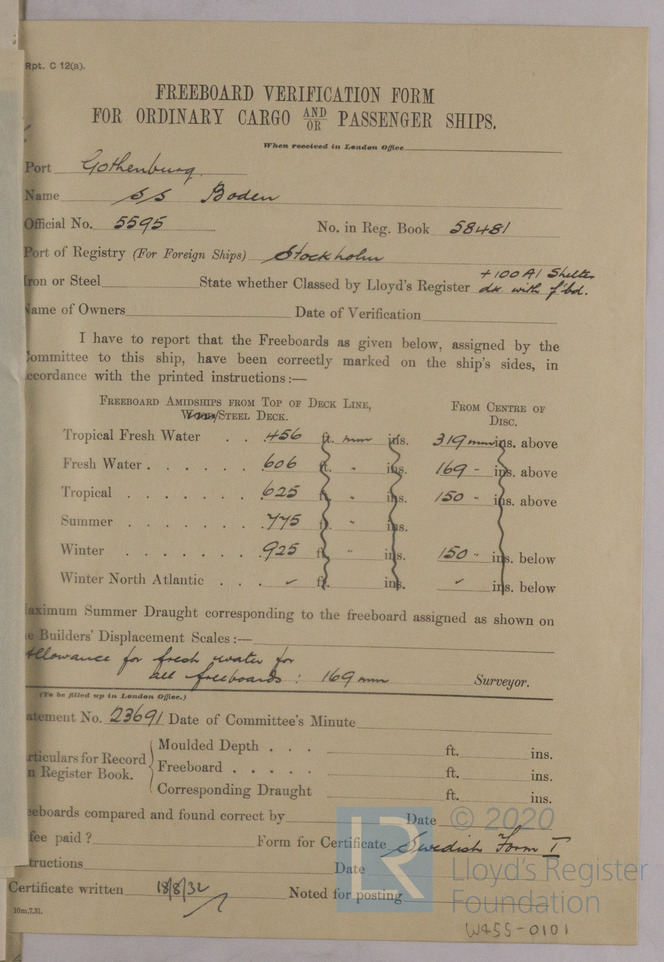 Rpt. C 12(a).
FREEBOARD VERIFICATION FORM
FOR ORDINARY CARGO AND/OR PASSENGER SHIPS.
When received in London Office
Port Gothenburg.
Name SS Boden
Official No. 5595 No. in Reg. Book 58481
Port of Registry (For Foreign Ships) Stockholm
Iron or Steel State whether Classed by Lloyd's Register +100A1 Shelter dk with f'bd.
Name of Owners Date of Verification
I have to report that the Freeboards as given below, assigned by the
Committee to this ship, have been correctly marked on the ship's sides, in
ccordance with the printed instructions:—
FREEBOARD AMIDSHIPS FROM TOP OF DECK LINE, FROM CENTRE OF
/STEEL DECK. DISC.
Tropical Fresh Water . . 456 ft. mm ins. 319 mm ins. above
Fresh Water . . . . . 606 ft. " ins. 169 " ins. above
Tropical . . . . . . . 625 ft. " ins. 150 " ins. above
Summer . . . . . . . 775 ft. " ins.
Winter . . . . . . . 925 ft. " ins. 150 " ins. below
Winter North Atlantic . . . ✓ ft. ins. ✓ ins. below
aximum Summer Draught corresponding to the freeboard assigned as shown on
e Builders' Displacement Scales:—
Allowance for fresh water for
all freeboards : 169 mm Surveyor.
(To be filled up in London Office.)
atement No. 23691 Date of Committee's Minute
rticulars for Record
n Register Book.
Moulded Depth . . . ft. ins.
Freeboard . . . . . ft. ins.
Corresponding Draught ft. ins.
eeboards compared and found correct by Date
fee paid ? Form for Certificate Swedish Form I
structions Date
Certificate written 18/8/32 Noted for posting
10m.7.31.
LR © 2020
Lloyd's Register
Foundation
W455-0101